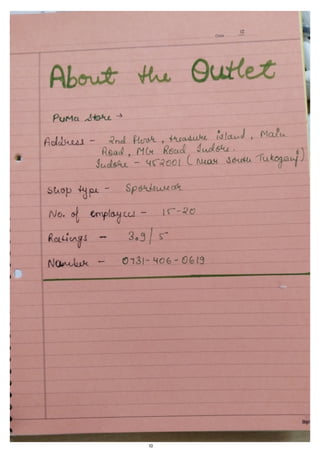 Date 12
About the Outlet
Puma Store →
Address - 2nd Floor, treasure island, Main
Road, MG Road Indore.
Indore - 452001 (Near South Tukoganj)
Shop type - Sportswear
No. of employees - 15-20
Ratings - 3.9/5
Number - 0731-406-0619
12